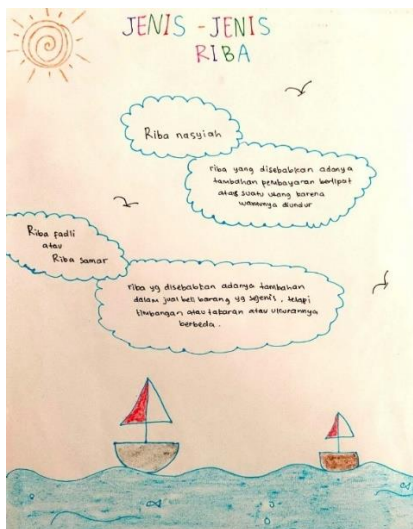 JENIS - JENIS
RIBA
Riba nasyiah
riba yang disebabkan adanya
tambahan pembayaran berlipat
atas suatu utang karena
waktunya diundur
Riba fadli
atau
Riba samar
riba yg disebabkan adanya tambahan
dalam jual beli barang yg sejenis, tetapi
timbangan atau takaran atau ukurannya
berbeda.